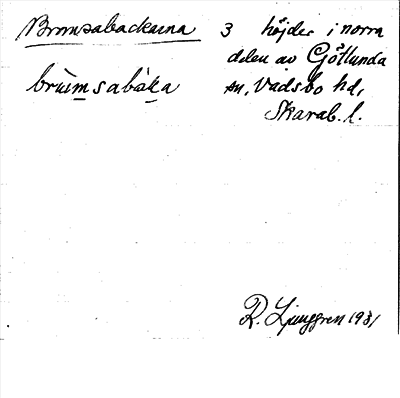 Bromsabackarna 3 höjder i norra
delen av Götlunda
sn, Vadsbo hd,
Skarab. l.
brùmsabàka
R. Ljunggren 1931